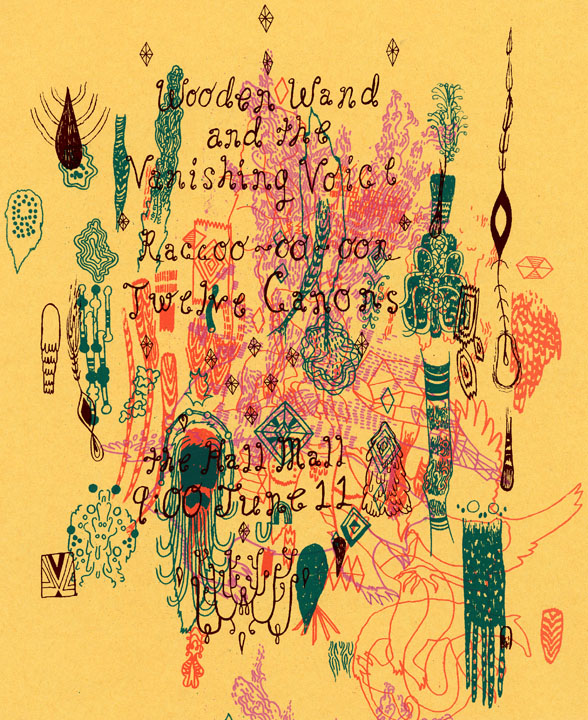 Wooden Wand
and the
Vanishing Voice
Raccoo-oo-oon
Twelve Canons
the Hall Mall
9:00 June 11